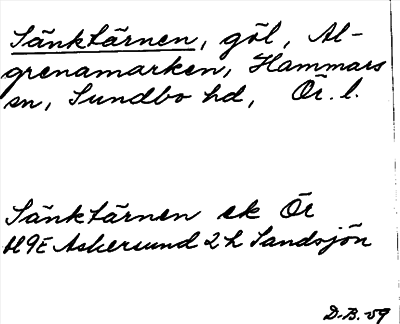 Sänktärnen, göl, Al-
grenamarken, Hammars
sn, Sundbo hd, Ör. l.
Sänktärnen ek Ör
H9E Askersund 2h Sandsjön
D.B.-59